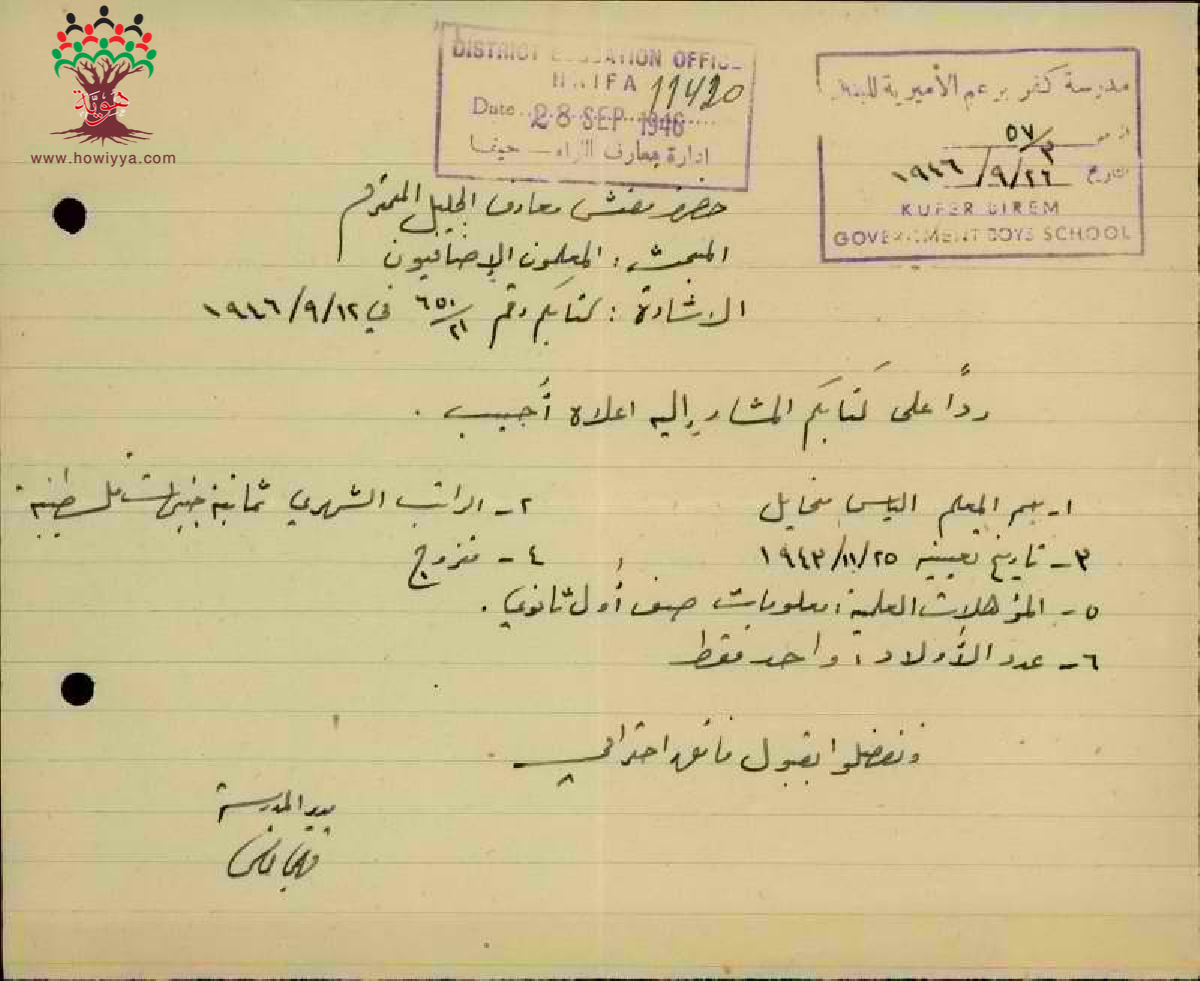 هويّة
www.howiyya.com
DISTRICT EDUCATION OFFICE
HAIFA 11420
Date 28 SEP 1946
إدارة معارف اللواء - حيفا
مدرسة كفر برعم الأميرية للبنين
٥٧/٣
التاريخ ٢٦/٩/١٩٤٦
KUFER BIREM
GOVERNMENT BOYS SCHOOL
حضرة مفتش معارف الجليل المحترم
المبحث : المعلمون الإضافيون
الاشارة : كتابكم رقم ٦٥٠/٢١ في ١٢/٩/١٩٤٦
رداً على كتابكم المشار إليه اعلاه أجيب .
١- اسم المعلم الياس مخايل
٢- الراتب الشهري ثمانية جنيهات فلسطينية
٣- تاريخ تعيينه ٢٥/١١/١٩٤٣
٤- متزوج
٥- المؤهلات العلمية : معلومات صف أول ثانوي .
٦- عدد الأولاد : واحد فقط
وتفضلوا بقبول فائق احترامي .
مدير المدرسة